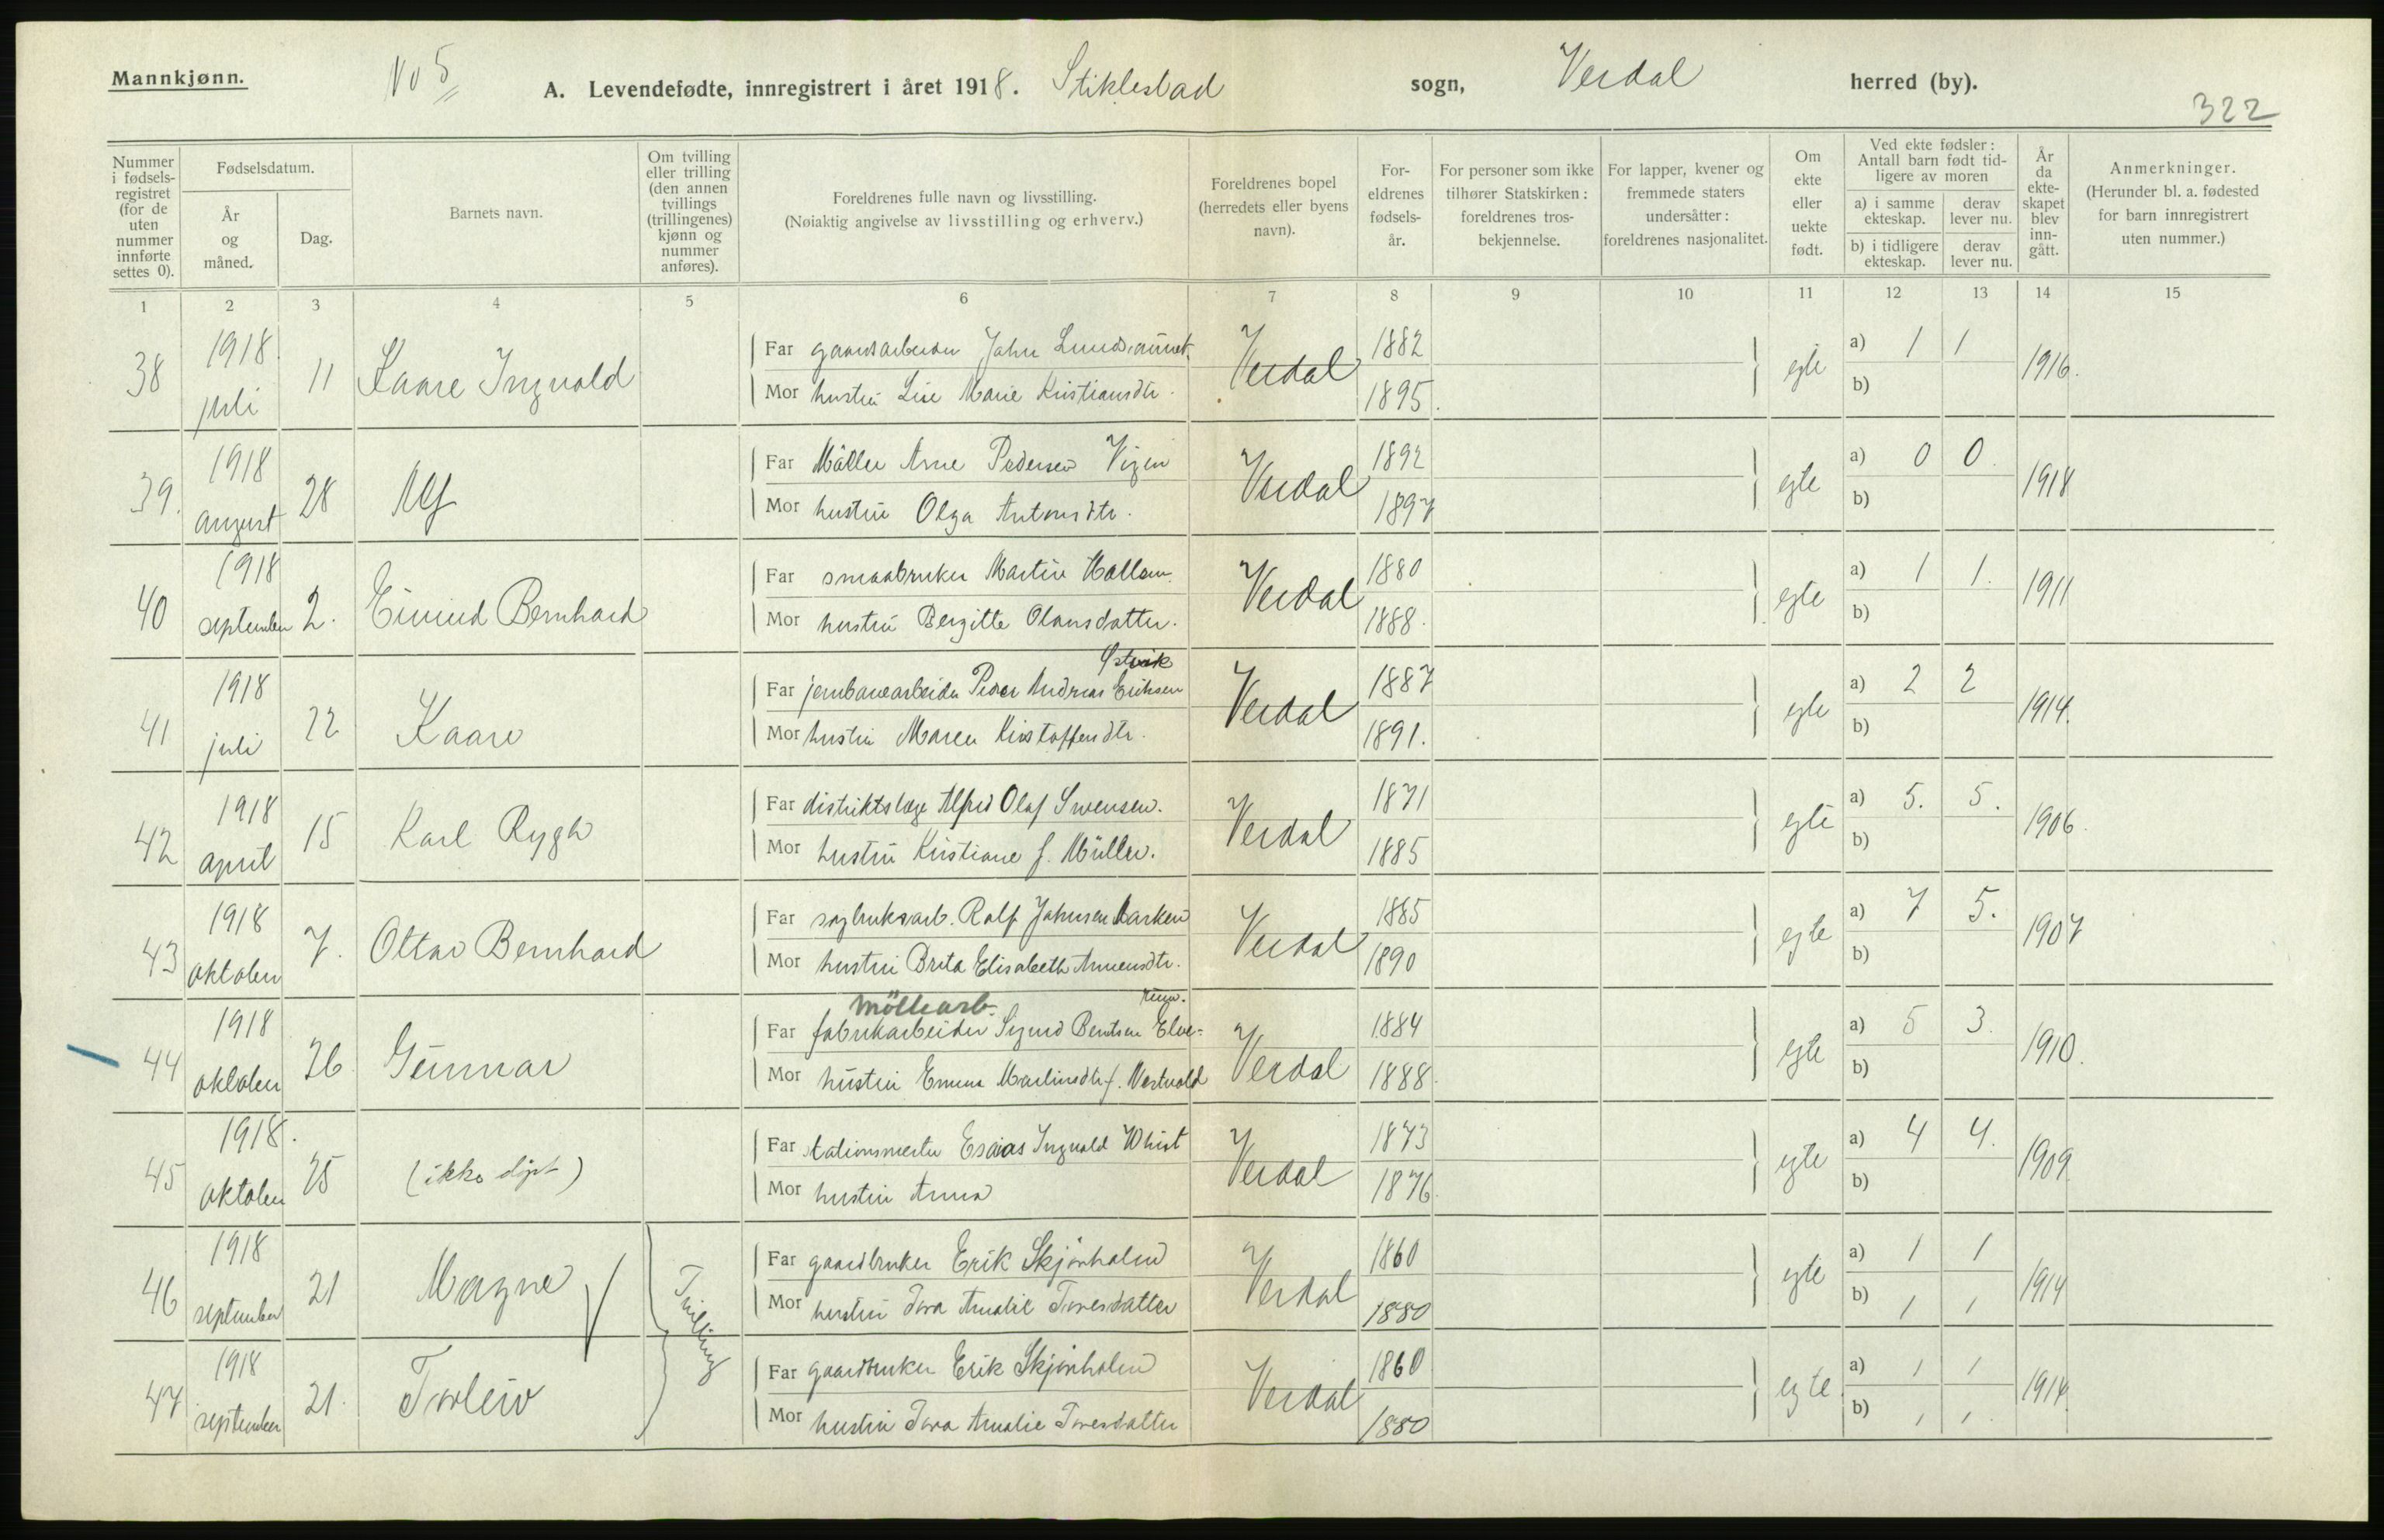 Mannkjønn.
No 5
A. Levendefødte, innregistrert i året 1918. Stiklestad sogn, Verdal herred (by).
322
Nummer i fødselsregistret (for de uten nummer innførte settes 0).
Fødselsdatum.
År og måned.
Dag.
Barnets navn.
Om tvilling eller trilling (den annen tvillings (trillingenes) kjønn og nummer anføres).
Foreldrenes fulle navn og livsstilling.
(Nøiaktig angivelse av livsstilling og erhverv.)
Foreldrenes bopel (herredets eller byens navn).
Foreldrenes fødselsår.
For personer som ikke tilhører Statskirken: foreldrenes trosbekjennelse.
For lapper, kvener og fremmede staters undersåtter: foreldrenes nasjonalitet.
Om ekte eller uekte født.
Ved ekte fødsler: Antall barn født tidligere av moren
a) i samme ekteskap. derav lever nu.
b) i tidligere ekteskap. derav lever nu.
År da ekteskapet blev inngått.
Anmerkninger.
(Herunder bl. a. fødested for barn innregistrert uten nummer.)
1 2 3 4 5 6 7 8 9 10 11 12 13 14 15
38 1918 juli 11 Kaare Ingvald
Far gaardsarbeider Jahn Lundsaunet. Verdal 1882 egte a) 1 1 1916.
Mor hustru Lise Marie Kristiansdtr. 1895. b)
39. 1918 august 28 Alf
Far Møller Arne Pedersen Vizen Verdal 1892 egte a) 0 0. 1918
Mor hustru Olga Antonsdtr. 1897 b)
40 1918 september 2. Eivind Bernhard
Far smaabruker Martin Hallem. Verdal 1880 egte a) 1 1. 1911
Mor hustru Bergitte Olausdatter. 1888. b)
41 1918 juli 22 Kaare
Østvik
Far jernbanearbeider Peder Andreas Eriksen Verdal 1887 egte a) 2 2 1914.
Mor hustru Maren Kristoffersdtr. 1891. b)
42 1918 april 15 Karl Rygh
Far distriktslæge Alfred Olaf Swensen. Verdal 1871 egte a) 5. 5. 1906.
Mor hustru Kristiane f. Müller. 1885 b)
43 1918 oktober 7. Ottar Bernhard
Far sagbruksarb. Rolf Johnsen Marken Verdal 1885 egte a) 7 5. 1907
Mor hustru Brita Elisabeth Arnensdtr. 1890 b)
44 1918 oktober 26 Gunnar
Möllearb. rum.
Far fabrikarbeider Sigurd Bentsen Elve= Verdal 1884 egte a) 5 3. 1910.
Mor hustru Emma Martinsdtr f. Vestvold 1888. b)
45 1918. oktober 25 (ikke døpt)
Far stationsmester Esaias Ingvald Whist Verdal 1873 egte a) 4 4. 1909.
Mor hustru Anna 1876. b)
46 1918 september 21 Magne Tvilling
Far gaardbruker Erik Skjørholm Verdal 1860 egte a) 1 1 1914
Mor hustru Tora Amalie Toresdatter 1880 b) 1 1
47 1918 september 21. Torleiv
Far gaardbruker Erik Skjørholm Verdal 1860 egte. a) 1 1 1914.
Mor hustru Tora Amalie Toresdatter 1880 b) 1 1.